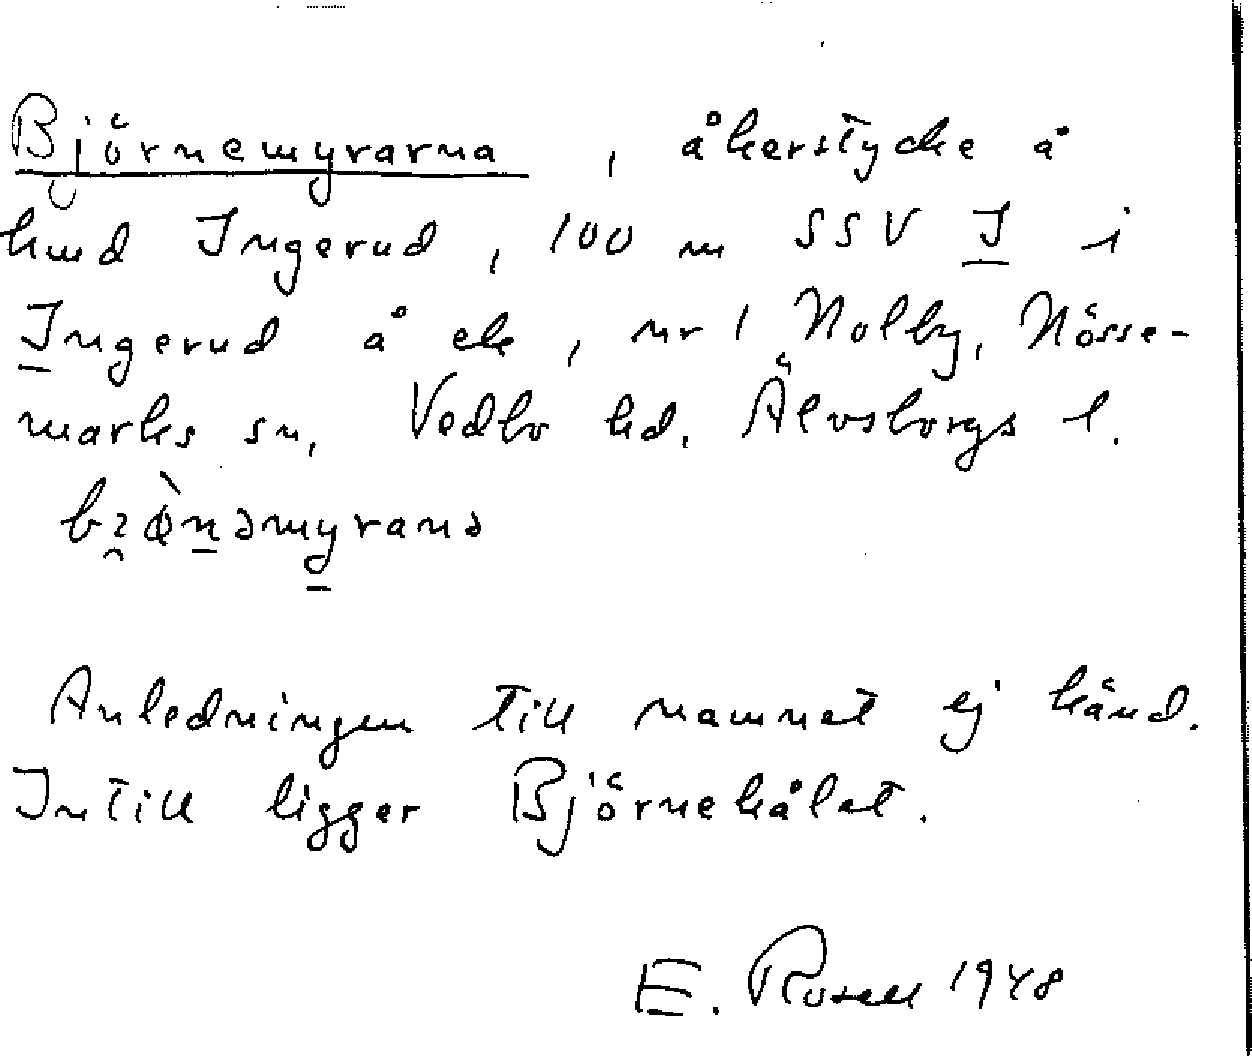 Björnemyrarna, åkerstycke å
hmd Ingerud, 100 m SSV I i
Ingerud å ek, nr 1 Nolby, Nösse-
marks sn, Vedbo hd. Älvsborgs l.
Anledningen till namnet ej känd.
Intill ligger Björnehålet.
E. Rosell 1948